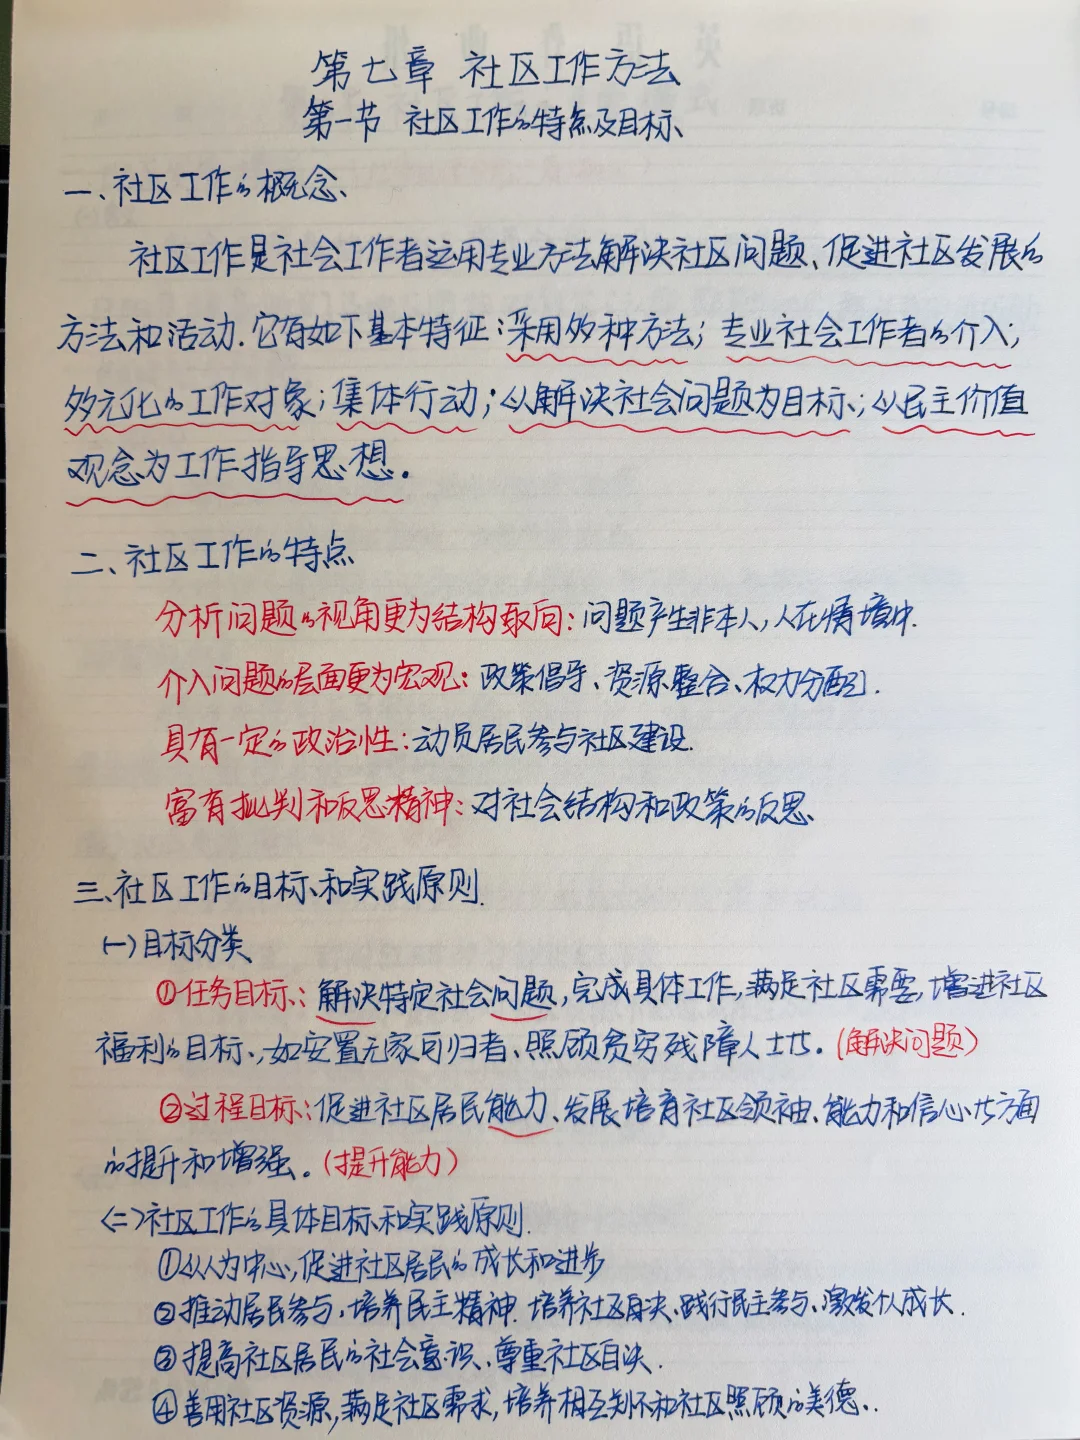 第七章 社区工作方法
第一节 社区工作的特点及目标
一、社区工作的概念
社区工作是社会工作者运用专业方法解决社区问题、促进社区发展的
方法和活动.它有如下基本特征:采用多种方法;专业社会工作者的介入;
多元化的工作对象;集体行动;以解决社会问题为目标;以民主价值
观念为工作指导思想。
二、社区工作的特点
分析问题的视角更为结构取向:问题产生非本人,人在情境中.
介入问题的层面更为宏观:政策倡导、资源整合、权力分配.
具有一定的政治性:动员居民参与社区建设.
富有批判和反思精神:对社会结构和政策的反思
三、社区工作的目标和实践原则.
(一)目标分类
①任务目标:解决特定社会问题,完成具体工作,满足社区需要,增进社区
福利的目标,如安置无家可归者、照顾贫穷残障人士等。(解决问题)
②过程目标:促进社区居民能力、发展培育社区领袖、能力和信心等方面
的提升和增强。(提升能力)
(二)社区工作的具体目标和实践原则.
①以人为中心,促进社区居民的成长和进步
②推动居民参与,培养民主精神.培养社区自决、践行民主参与、激发个人成长.
③提高社区居民的社会意识、尊重社区自决.
④善用社区资源,满足社区需求,培养相互关怀和社区照顾的美德.